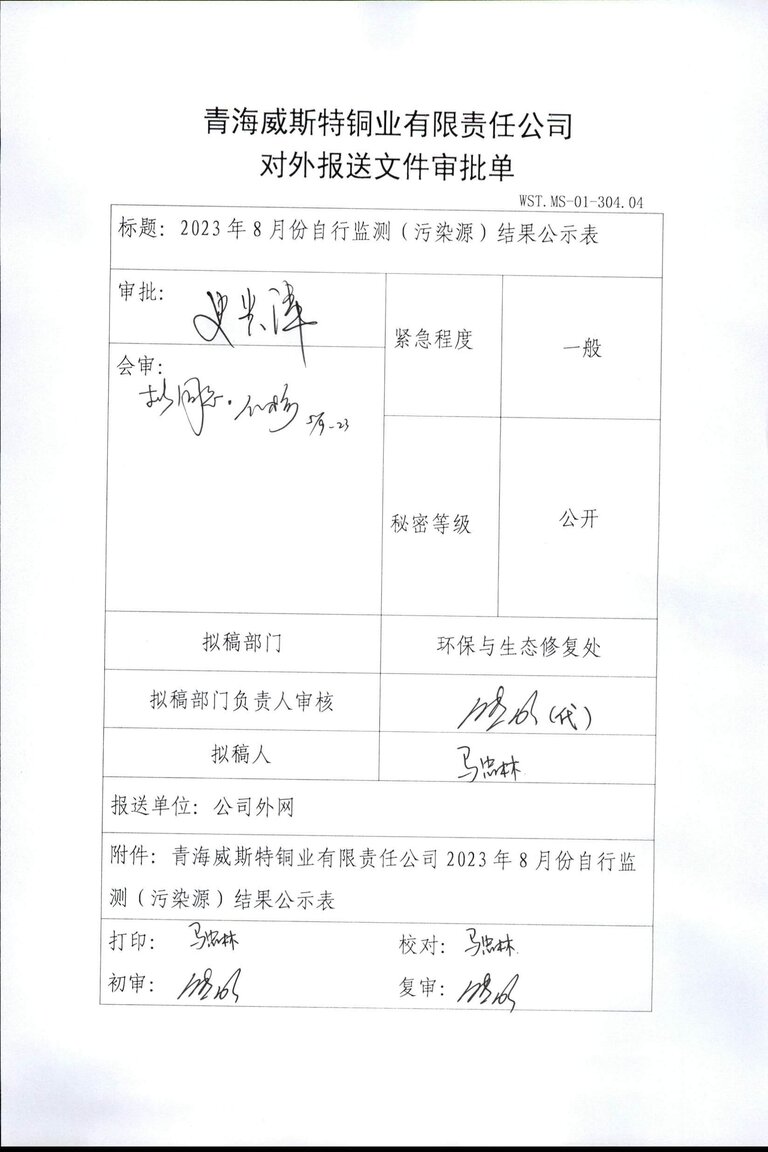 青海威斯特铜业有限责任公司
对外报送文件审批单
WST.MS-01-304.04
标题：2023年8月份自行监测（污染源）结果公示表
审批：
紧急程度
一般
会审：
5/9-23
秘密等级
公开
拟稿部门
环保与生态修复处
拟稿部门负责人审核
（代）
拟稿人
马忠林
报送单位：公司外网
附件：青海威斯特铜业有限责任公司2023年8月份自行监
测（污染源）结果公示表
打印：马忠林
校对：马忠林
初审：
复审：